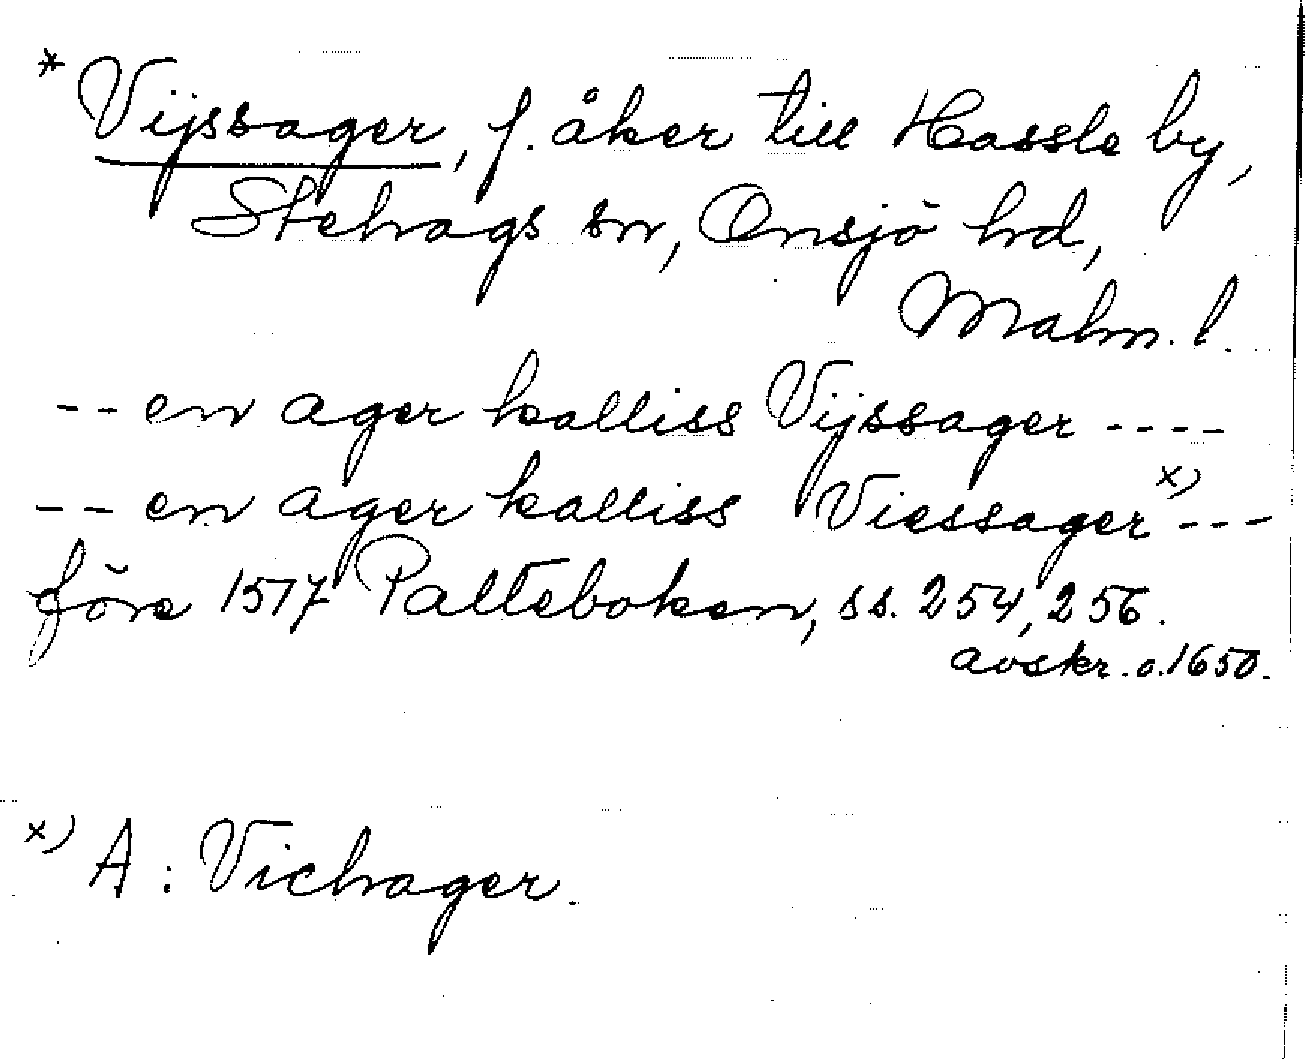 * Vijssager, f. åker till Hassle by,
Stehags sn, Onsjö hd,
Malm. l.
-- en ager kalliss Vijssager ----
-- en ager kalliss Viessager x) ---
före 1517 Palteboken, ss. 254, 256.
avskr. o. 1650.
x) A : Vichager.